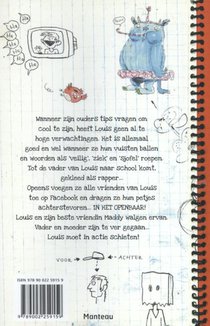 Wanneer zijn ouders tips vragen om
cool te zijn, heeft Louis geen al te
hoge verwachtingen. Het is allemaal
goed en wel wanneer ze hun vuisten ballen
en woorden als 'veilig', 'ziek' en 'sjofel' roepen.
Tot de vader van Louis naar school komt,
gekleed als rapper...
Opeens voegen ze alle vrienden van Louis
toe op Facebook en dragen ze hun petjes
achterstevoren... IN HET OPENBAAR!
Louis en zijn beste vriendin Maddy walgen ervan.
Vader en moeder zijn te ver gegaan...
Louis moet in actie schieten!
VOOR
ACHTER
ISBN 978 90 022 5915 9
9 789002 259159
Manteau